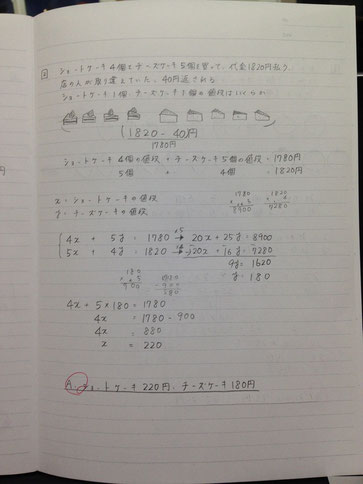 ショートケーキ4個とチーズケーキ5個を買って、代金1820円払う。
店の人が取り違えていた。40円返される
ショートケーキ1個、チーズケーキ1個の値段はいくらか
1820-40円
1780円
ショートケーキ4個の値段+チーズケーキ5個の値段=1780円
5個 + 4個 =1820円
x=ショートケーキの値段
y=チーズケーキの値段
1780
× 5
8900
1820
× 4
7280
4x + 5y = 1780 ×5→ 20x+25y=8900
5x + 4y = 1820 ×4→ -)20x+16y=7280
9y=1620
y=180
180
× 5
900
1780
- 900
880
4x + 5×180=1780
4x =1780-900
4x =880
x =220
A.ショートケーキ220円、チーズケーキ180円